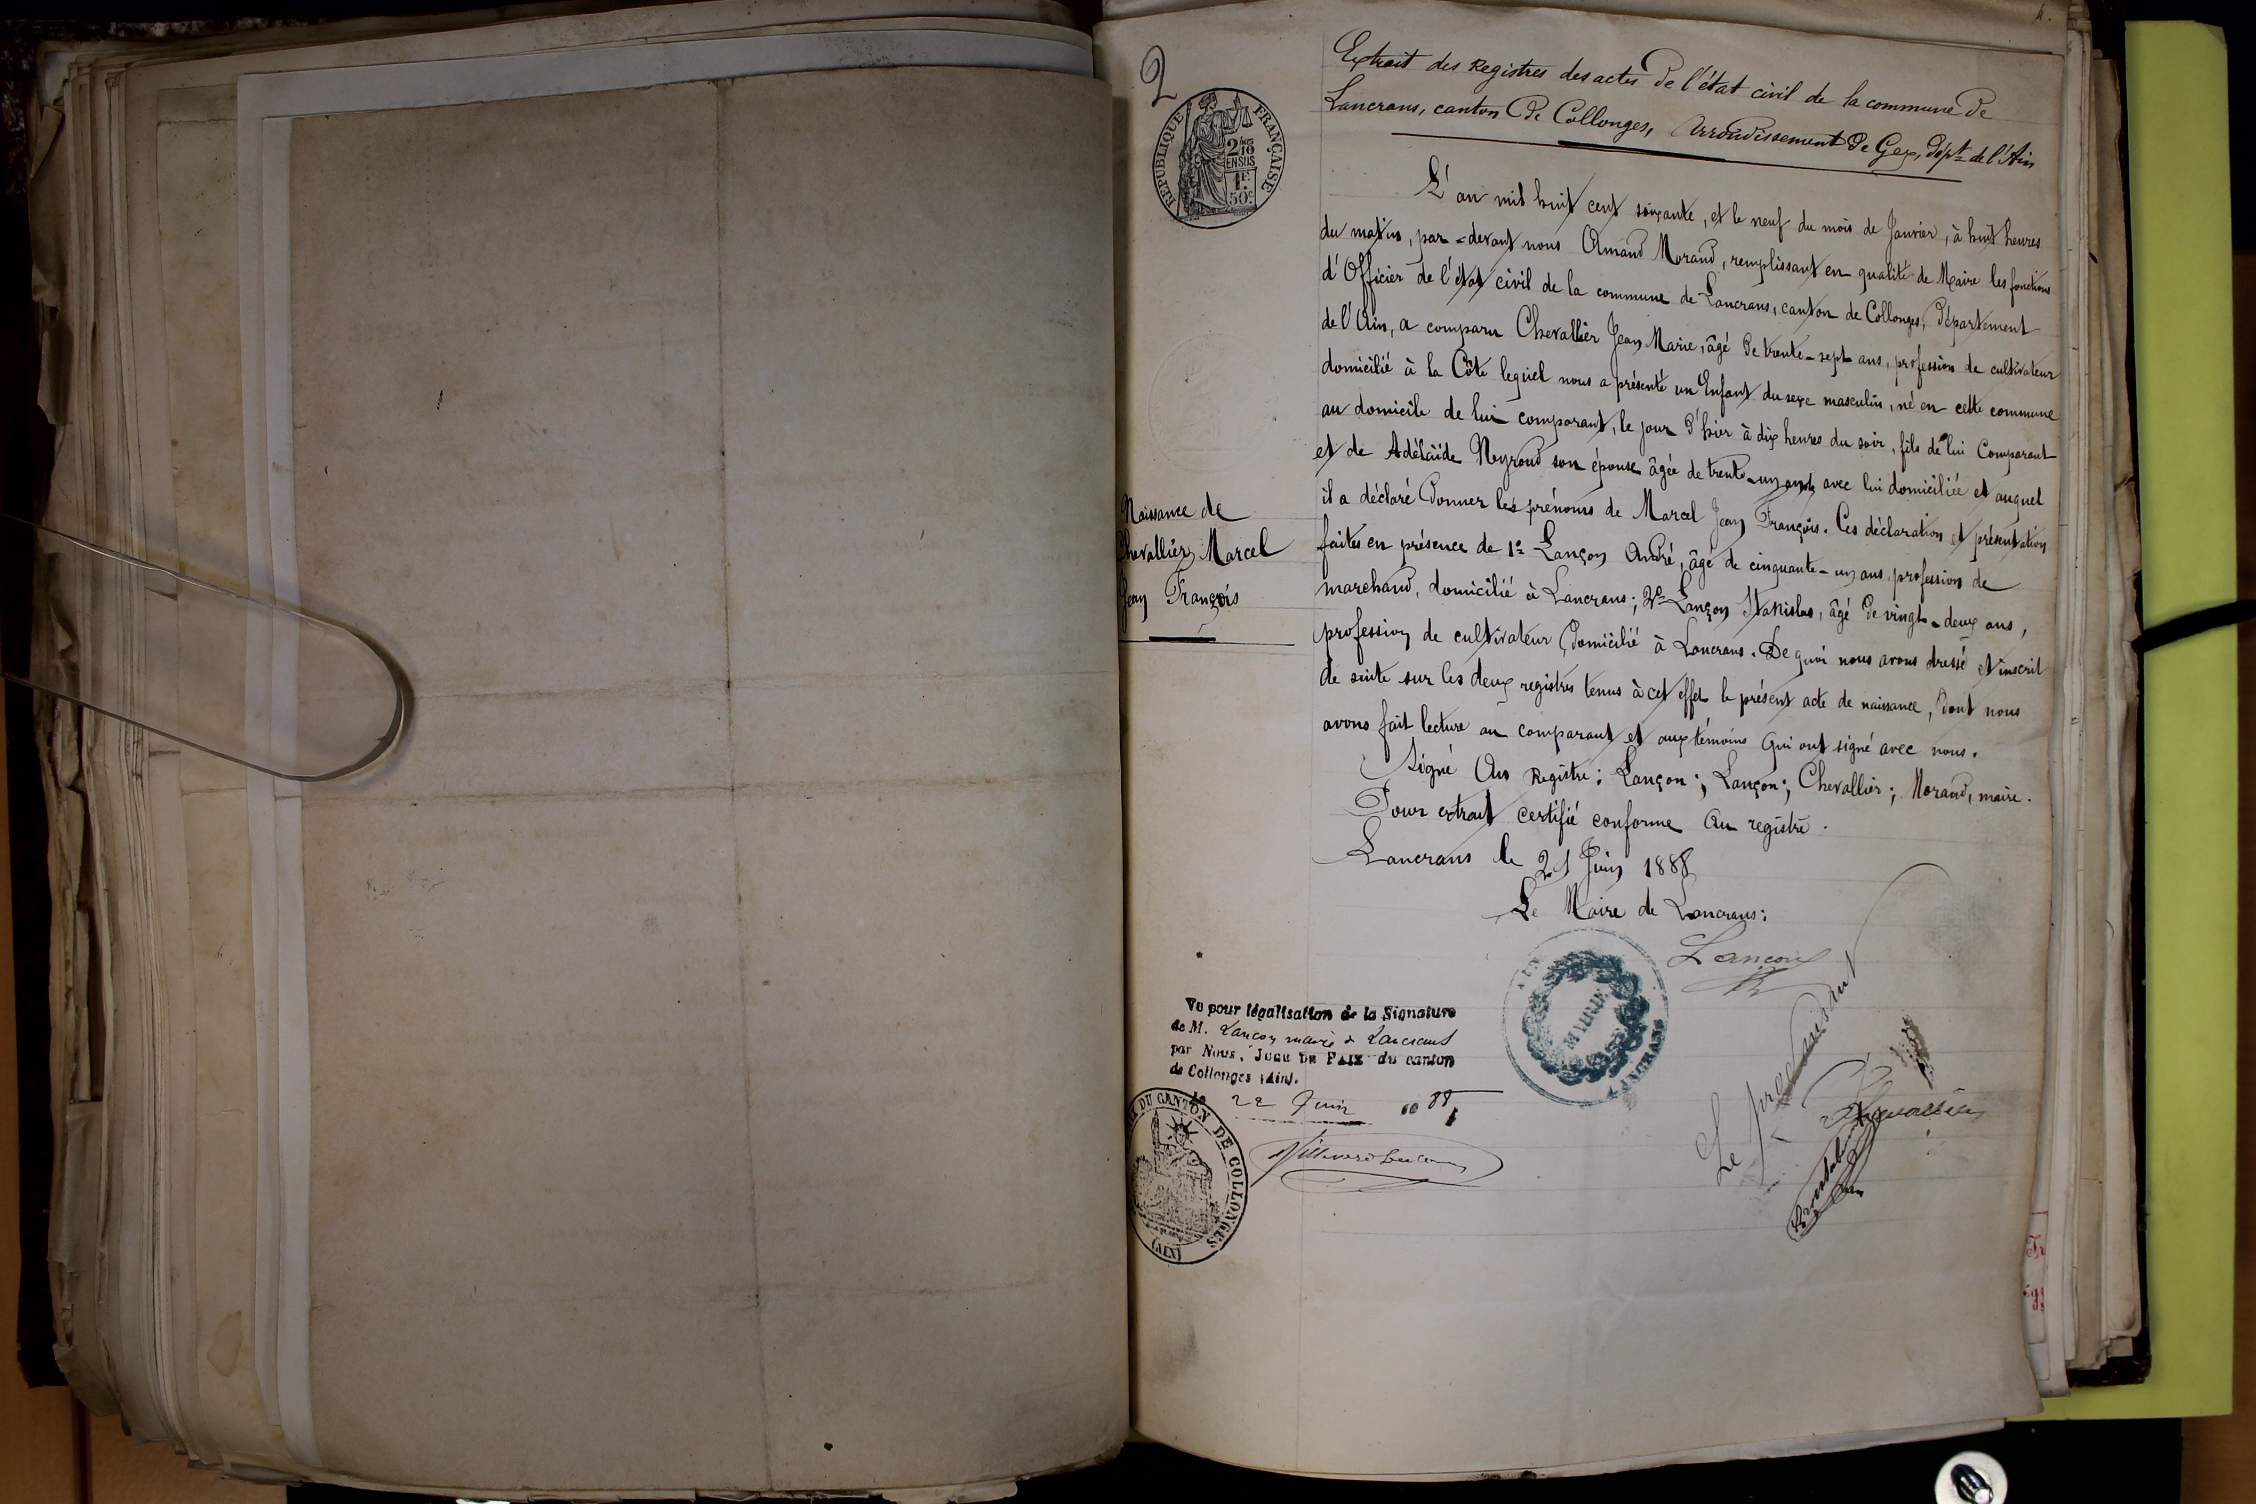 2
RÉPUBLIQUE FRANÇAISE
2/10
EN SUS
1F.
50c
Extrait des Registres des actes de l'état civil de la commune de
Lancrans, canton de Collonges, Arrondissement de Gex, dépt de l'Ain
L'an mil huit cent soixante, et le neuf du mois de Janvier, à huit heures
du matin, par-devant nous Amand Morand, remplissant en qualité de Maire les fonctions
d'Officier de l'état civil de la commune de Lancrans, canton de Collonges, département
de l'Ain, a comparu Chevallier Jean Marie, âgé de trente-sept ans, profession de cultivateur
domicilié à la Côte lequel nous a présenté un Enfant du sexe masculin, né en cette commune
au domicile de lui comparant, le jour d'hier à dix heures du soir, fils de lui Comparant
et de Adélaïde Neyroud son épouse âgée de trente-un ans avec lui domiciliée et auquel
il a déclaré donner les prénoms de Marcel Jean François. Ces déclaration et présentation
faites en présence de 1º Lançon André, âgé de cinquante-un ans profession de
marchand, domicilié à Lancrans; 2º Lançon Stanislas, âgé de vingt-deux ans,
profession de cultivateur domicilié à Lancrans. De quoi nous avons dressé et inscrit
de suite sur les deux registres tenus à cet effet le présent acte de naissance, dont nous
avons fait lecture au comparant et aux témoins qui ont signé avec nous.
Signé Au Registre: Lançon; Lançon; Chevallier; Morand, maire.
Pour extrait certifié conforme au registre.
Lancrans le 21 Juin 1888
Le Maire de Lancrans:
Lançon
Naissance de
Chevallier Marcel
Jean François
MAIRIE
AIN
LANCRANS
Vu pour légalisation de la Signature
de M. Lançon maire à Lancrans
par Nous, JUGE DE PAIX du canton
de Collonges (Ain).
le 22 Juin 1888
DU CANTON DE COLLONGES
(AIN)
Le
Chevallier